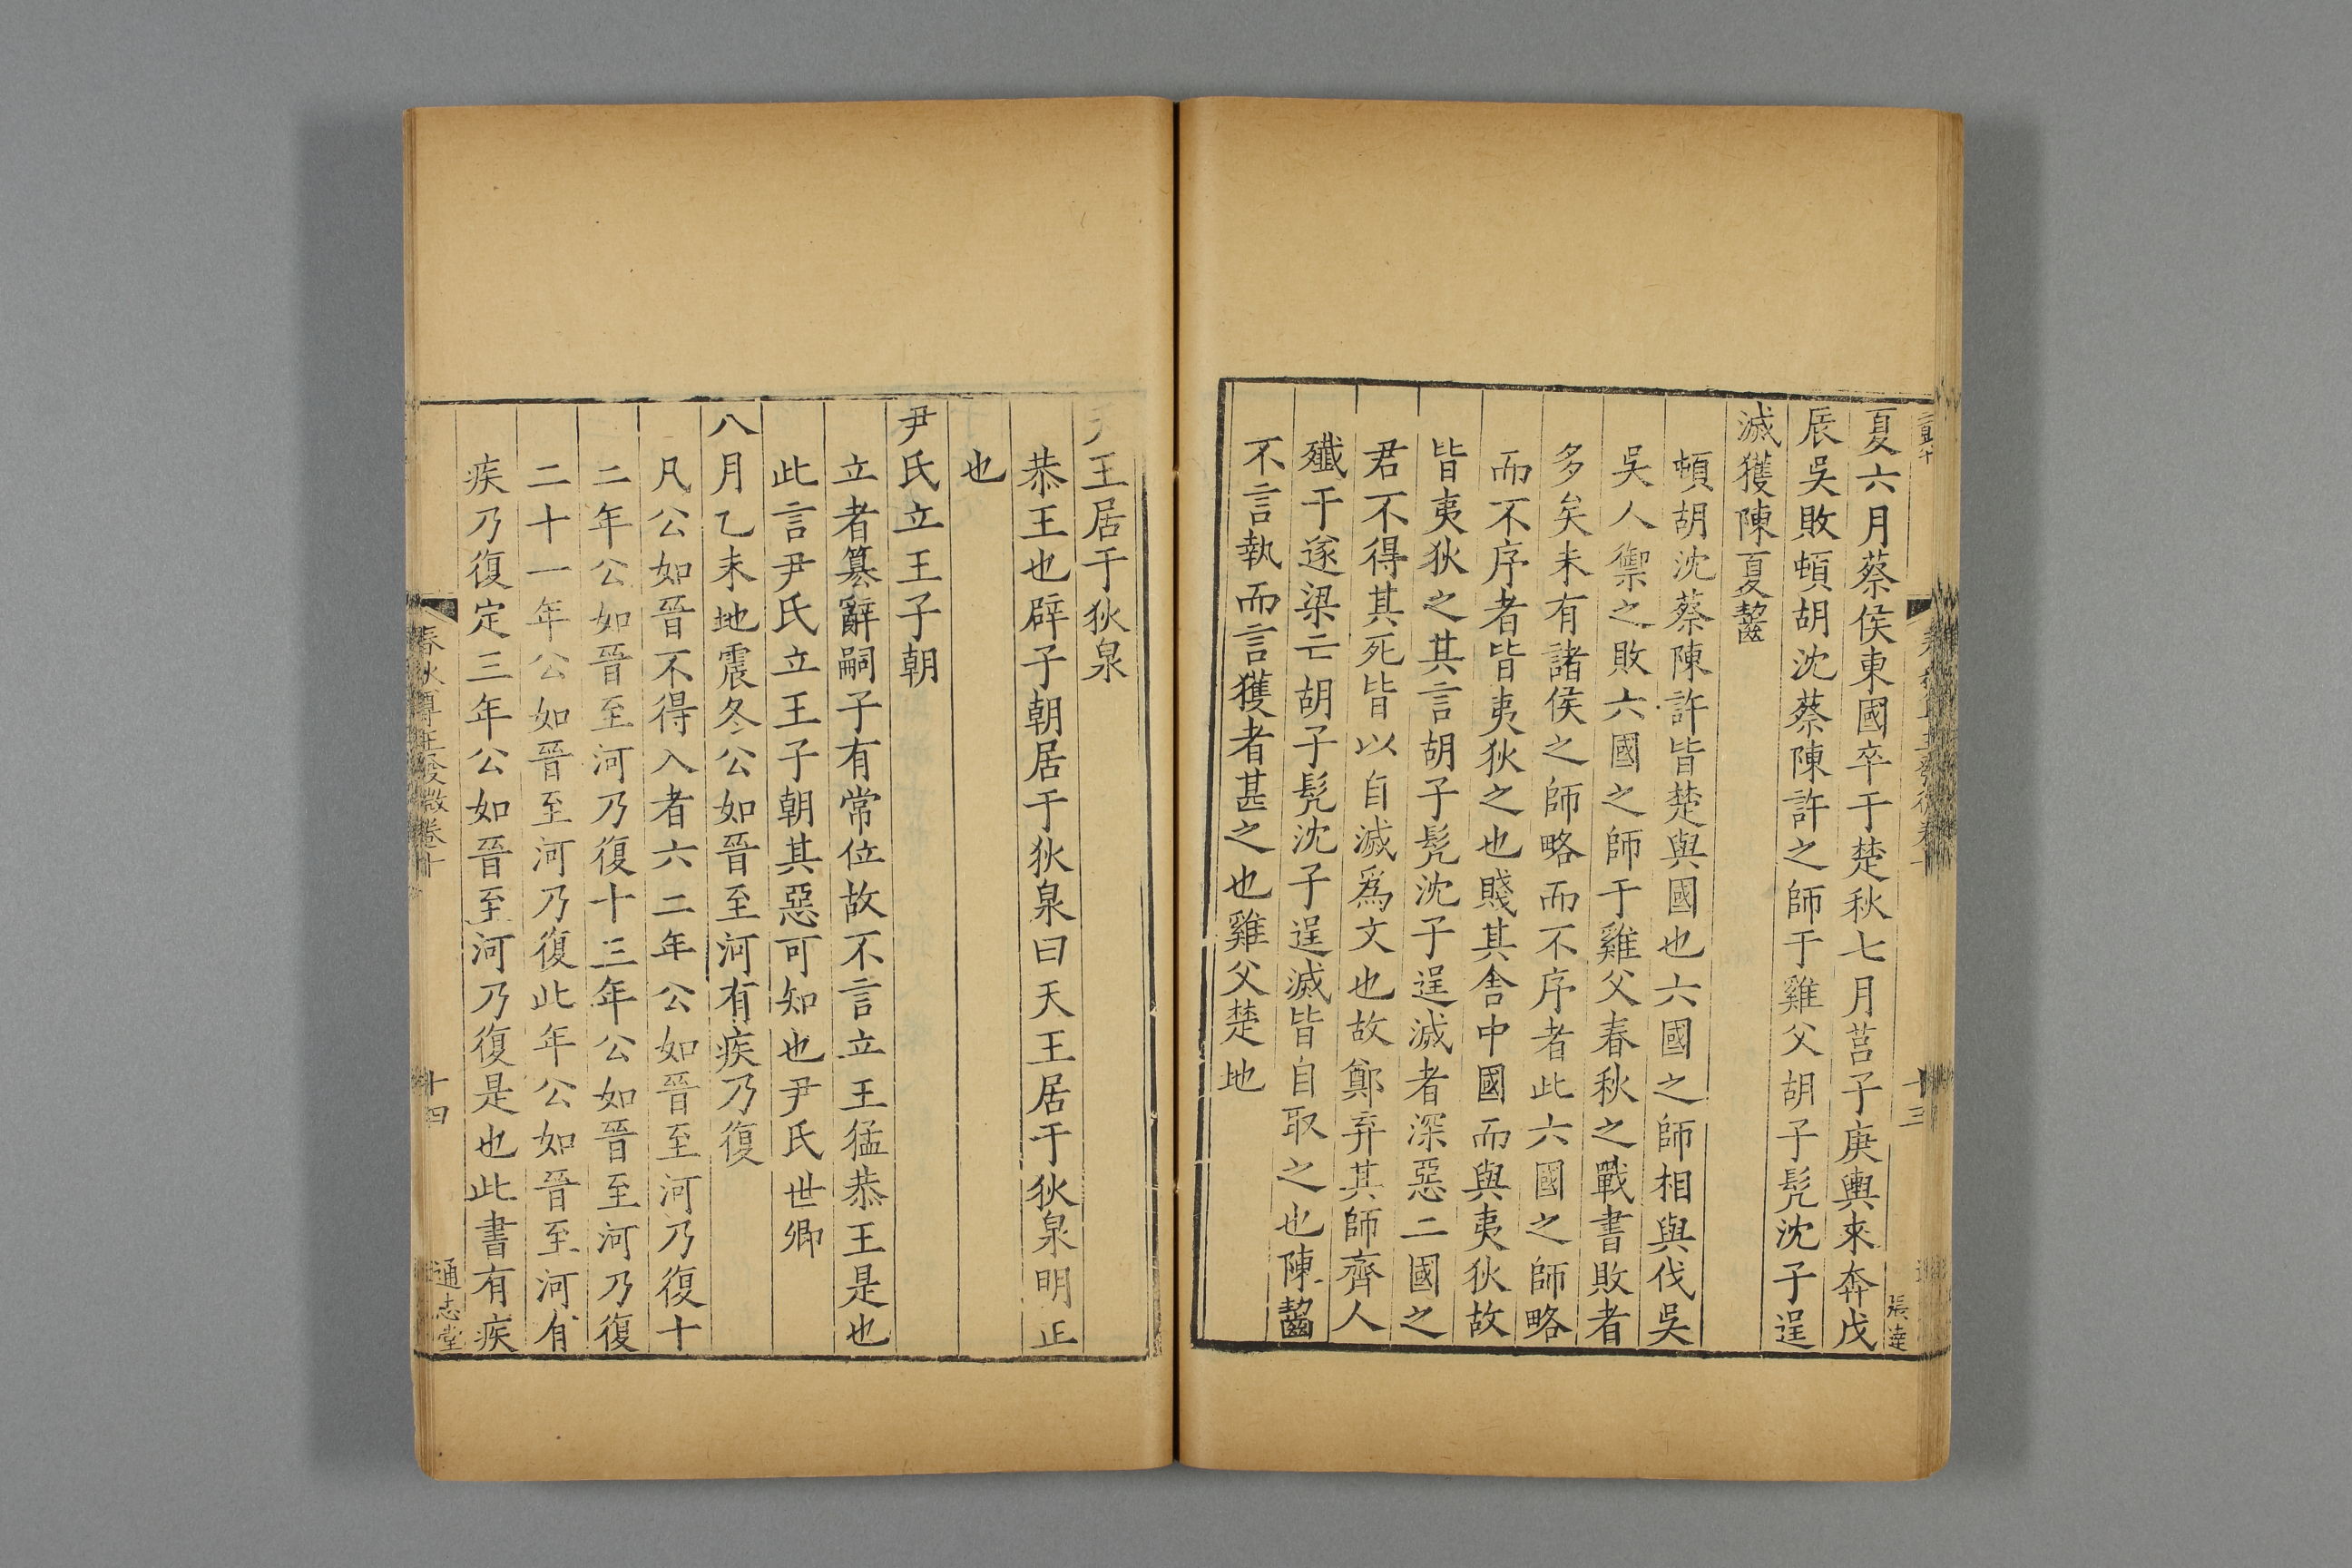 夏六月蔡侯東國卒于楚秋七月莒子庚輿來奔戊
辰吳敗頓胡沈蔡陳許之師于雞父胡子髡沈子逞
滅獲陳夏齧
頓胡沈蔡陳許皆楚與國也六國之師相與伐吳
吳人禦之敗六國之師于雞父春秋之戰書敗者
多矣未有諸侯之師略而不序者此六國之師略
而不序者皆夷狄之也賤其舎中國而與夷狄故
皆夷狄之其言胡子髡沈子逞滅者深惡二國之
君不得其死皆以自滅爲文也故鄭弃其師齊人
殲于遂梁亡胡子髡沈子逞滅皆自取之也陳齧
不言執而言獲者甚之也雞父楚地
十三
張達
王居于狄泉
恭王也辟子朝居于狄泉曰天王居于狄泉明正
也
尹氏立王子朝
立者篡辭嗣子有常位故不言立王猛恭王是也
此言尹氏立王子朝其惡可知也尹氏世卿
八月乙未地震冬公如晉至河有疾乃復
凡公如晉不得入者六二年公如晉至河乃復十
二年公如晉至河乃復十三年公如晉至河乃復
二十一年公如晉至河乃復此年公如晉至河有
疾乃復定三年公如晉至河乃復是也此書有疾
春秋尊王發微卷十
十四
通志堂